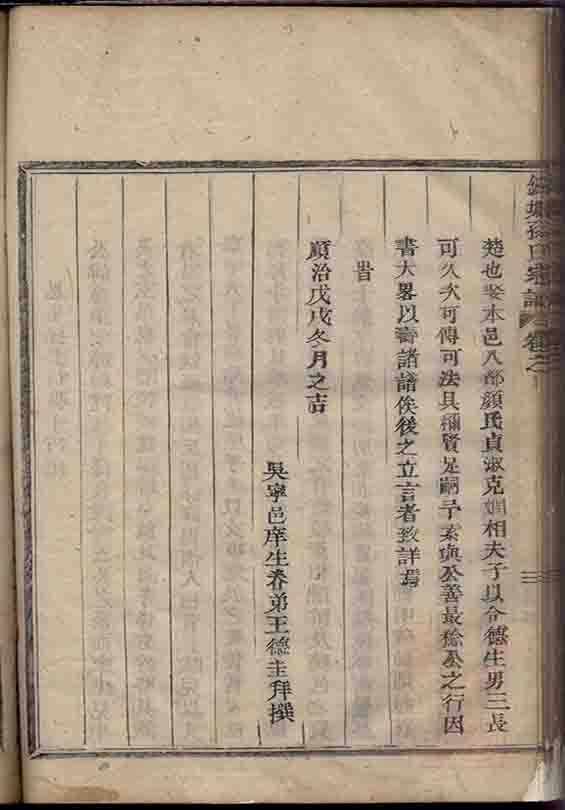 宗譜 卷之
楚也娶本邑八都顏氏貞淑克嫻相夫子以令德生男三長
可久次可傳可法具稱賢是嗣予素與公善最稔公之行因
書大畧以壽諸譜俟後之立言者致詳焉
旹
順治戊戌冬月之吉
吳寧邑庠生眷弟王德圭拜撰